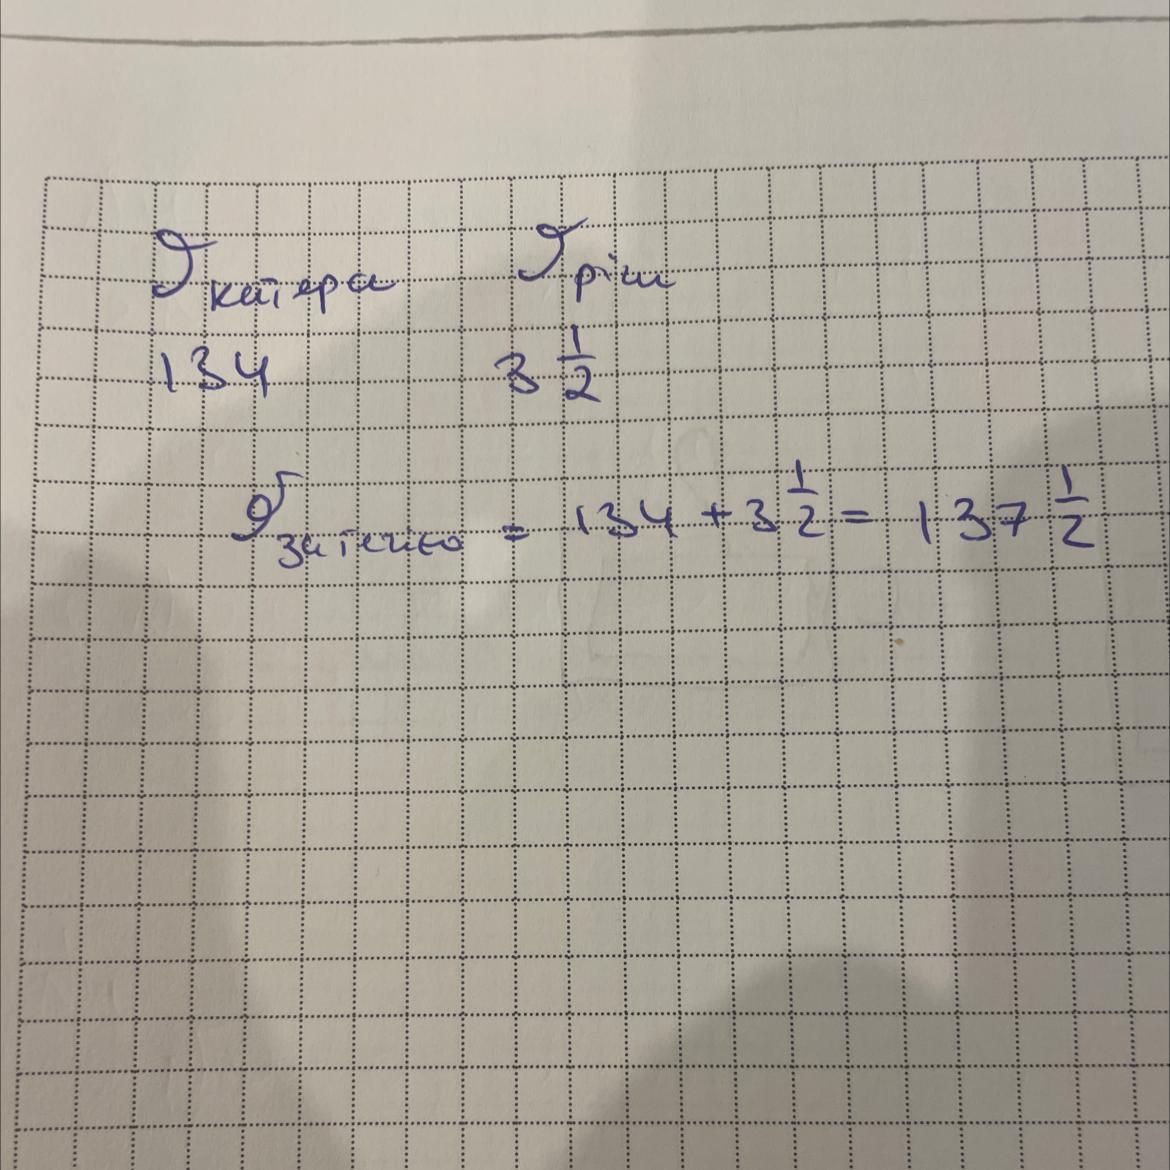 𝒥 катера 𝒥 річки
134 3 1/2
𝒥 за течією = 134 + 3 1/2 = 137 1/2